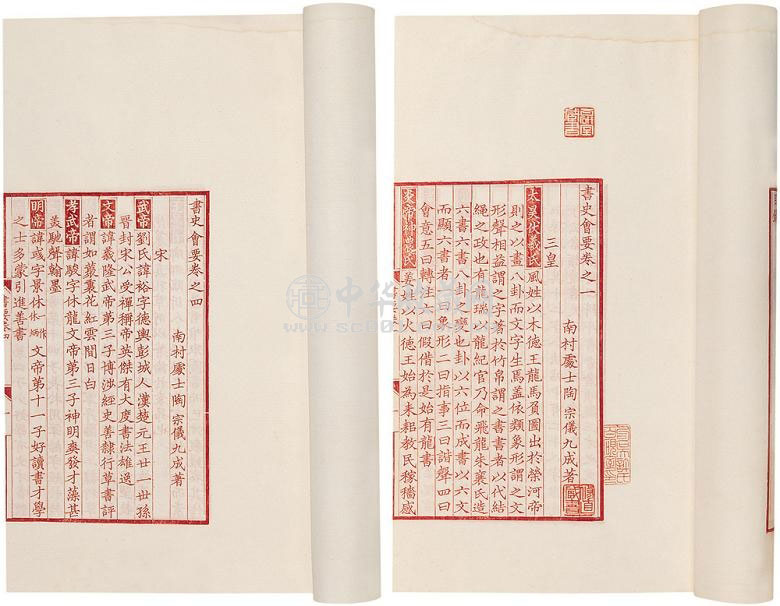 書史會要卷之一
南村處士陶宗儀九成著
三皇
太昊伏羲氏風姓以木德王龍馬負圖出於榮河帝
則之以畫八卦而文字生焉蓋依類象形謂之文
形聲相益謂之字著於竹帛謂之書書者以代結
繩之政也有龍瑞以龍紀官乃命飛龍朱襄氏造
六書六書八卦之變也卦以六位而成書以六文
而顯六書者一曰象形二曰指事三曰諧聲四曰
會意五曰轉注六曰假借於是始有龍書
炎帝神農氏姜姓以火德王始為耒耜教民稼穡感
書史會要卷之四
南村處士陶宗儀九成著
宋
武帝劉氏諱裕字德輿彭城人漢楚元王廿一世孫
晉封宋公受禪稱帝英傑有大度書法雄逸
文帝諱義隆武帝第三子博涉經史善隸行草書評
者謂如葳蕤花紅雲間日白
孝武帝諱駿字休龍文帝第三子神明爽發才藻甚
美馳聲翰墨
明帝諱彧字景休休作炳文帝第十一子好讀書才學
之士多蒙引進善書